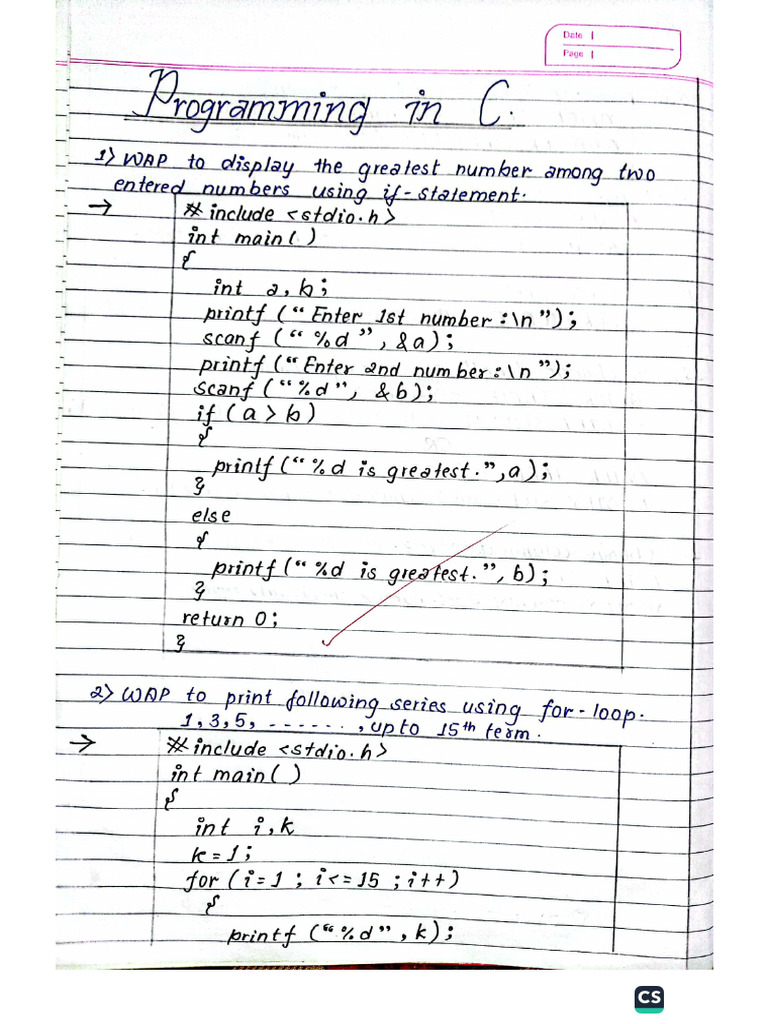 Date
Page
Programming in C.
1) WAP to display the greatest number among two
entered numbers using if-statement.
→ # include <stdio.h>
int main( )
{
int a, b;
printf (“ Enter 1st number :\n ”);
scanf (“ %d ”, &a);
printf (“ Enter 2nd number: \n ”);
scanf (“ %d ”, &b);
if ( a > b)
{
printf (“ %d is greatest.”, a);
}
else
{
printf (“ %d is greatest.”, b);
}
return 0;
}
2) WAP to print following series using for-loop.
1, 3, 5, - - - - - - ., upto 15th term.
→ # include <stdio.h>
int main( )
{
int i, k
k = 1;
for (i=1 ; i<=15 ; i++)
{
printf (“ %d ”, k);
CS